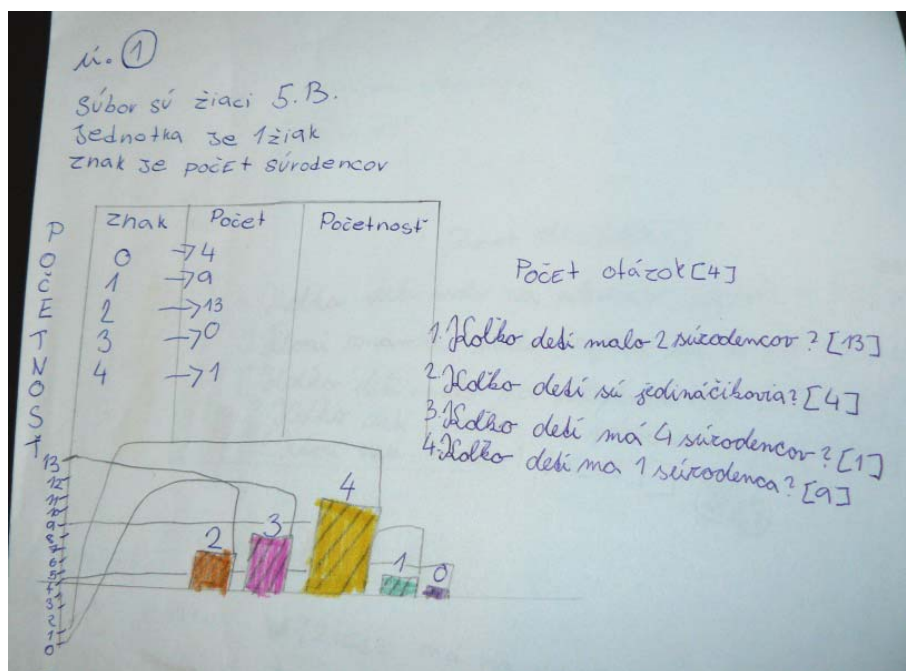 ú. 1
Súbor sú žiaci 5.B.
Jednotka je 1 žiak
znak je počet súrodencov
POČETNOSŤ
znak Počet Početnosť
0 → 4
1 → 9
2 → 13
3 → 0
4 → 1
Počet otázok [4]
1. Koľko detí malo 2 súrodencov? [13]
2. Koľko detí sú jedináčikovia? [4]
3. Koľko detí má 4 súrodencov? [1]
4. Koľko detí ma 1 súrodenca? [9]
13
12
11
10
9
8
7
6
5
4
3
2
1
0
2 3 4 1 0